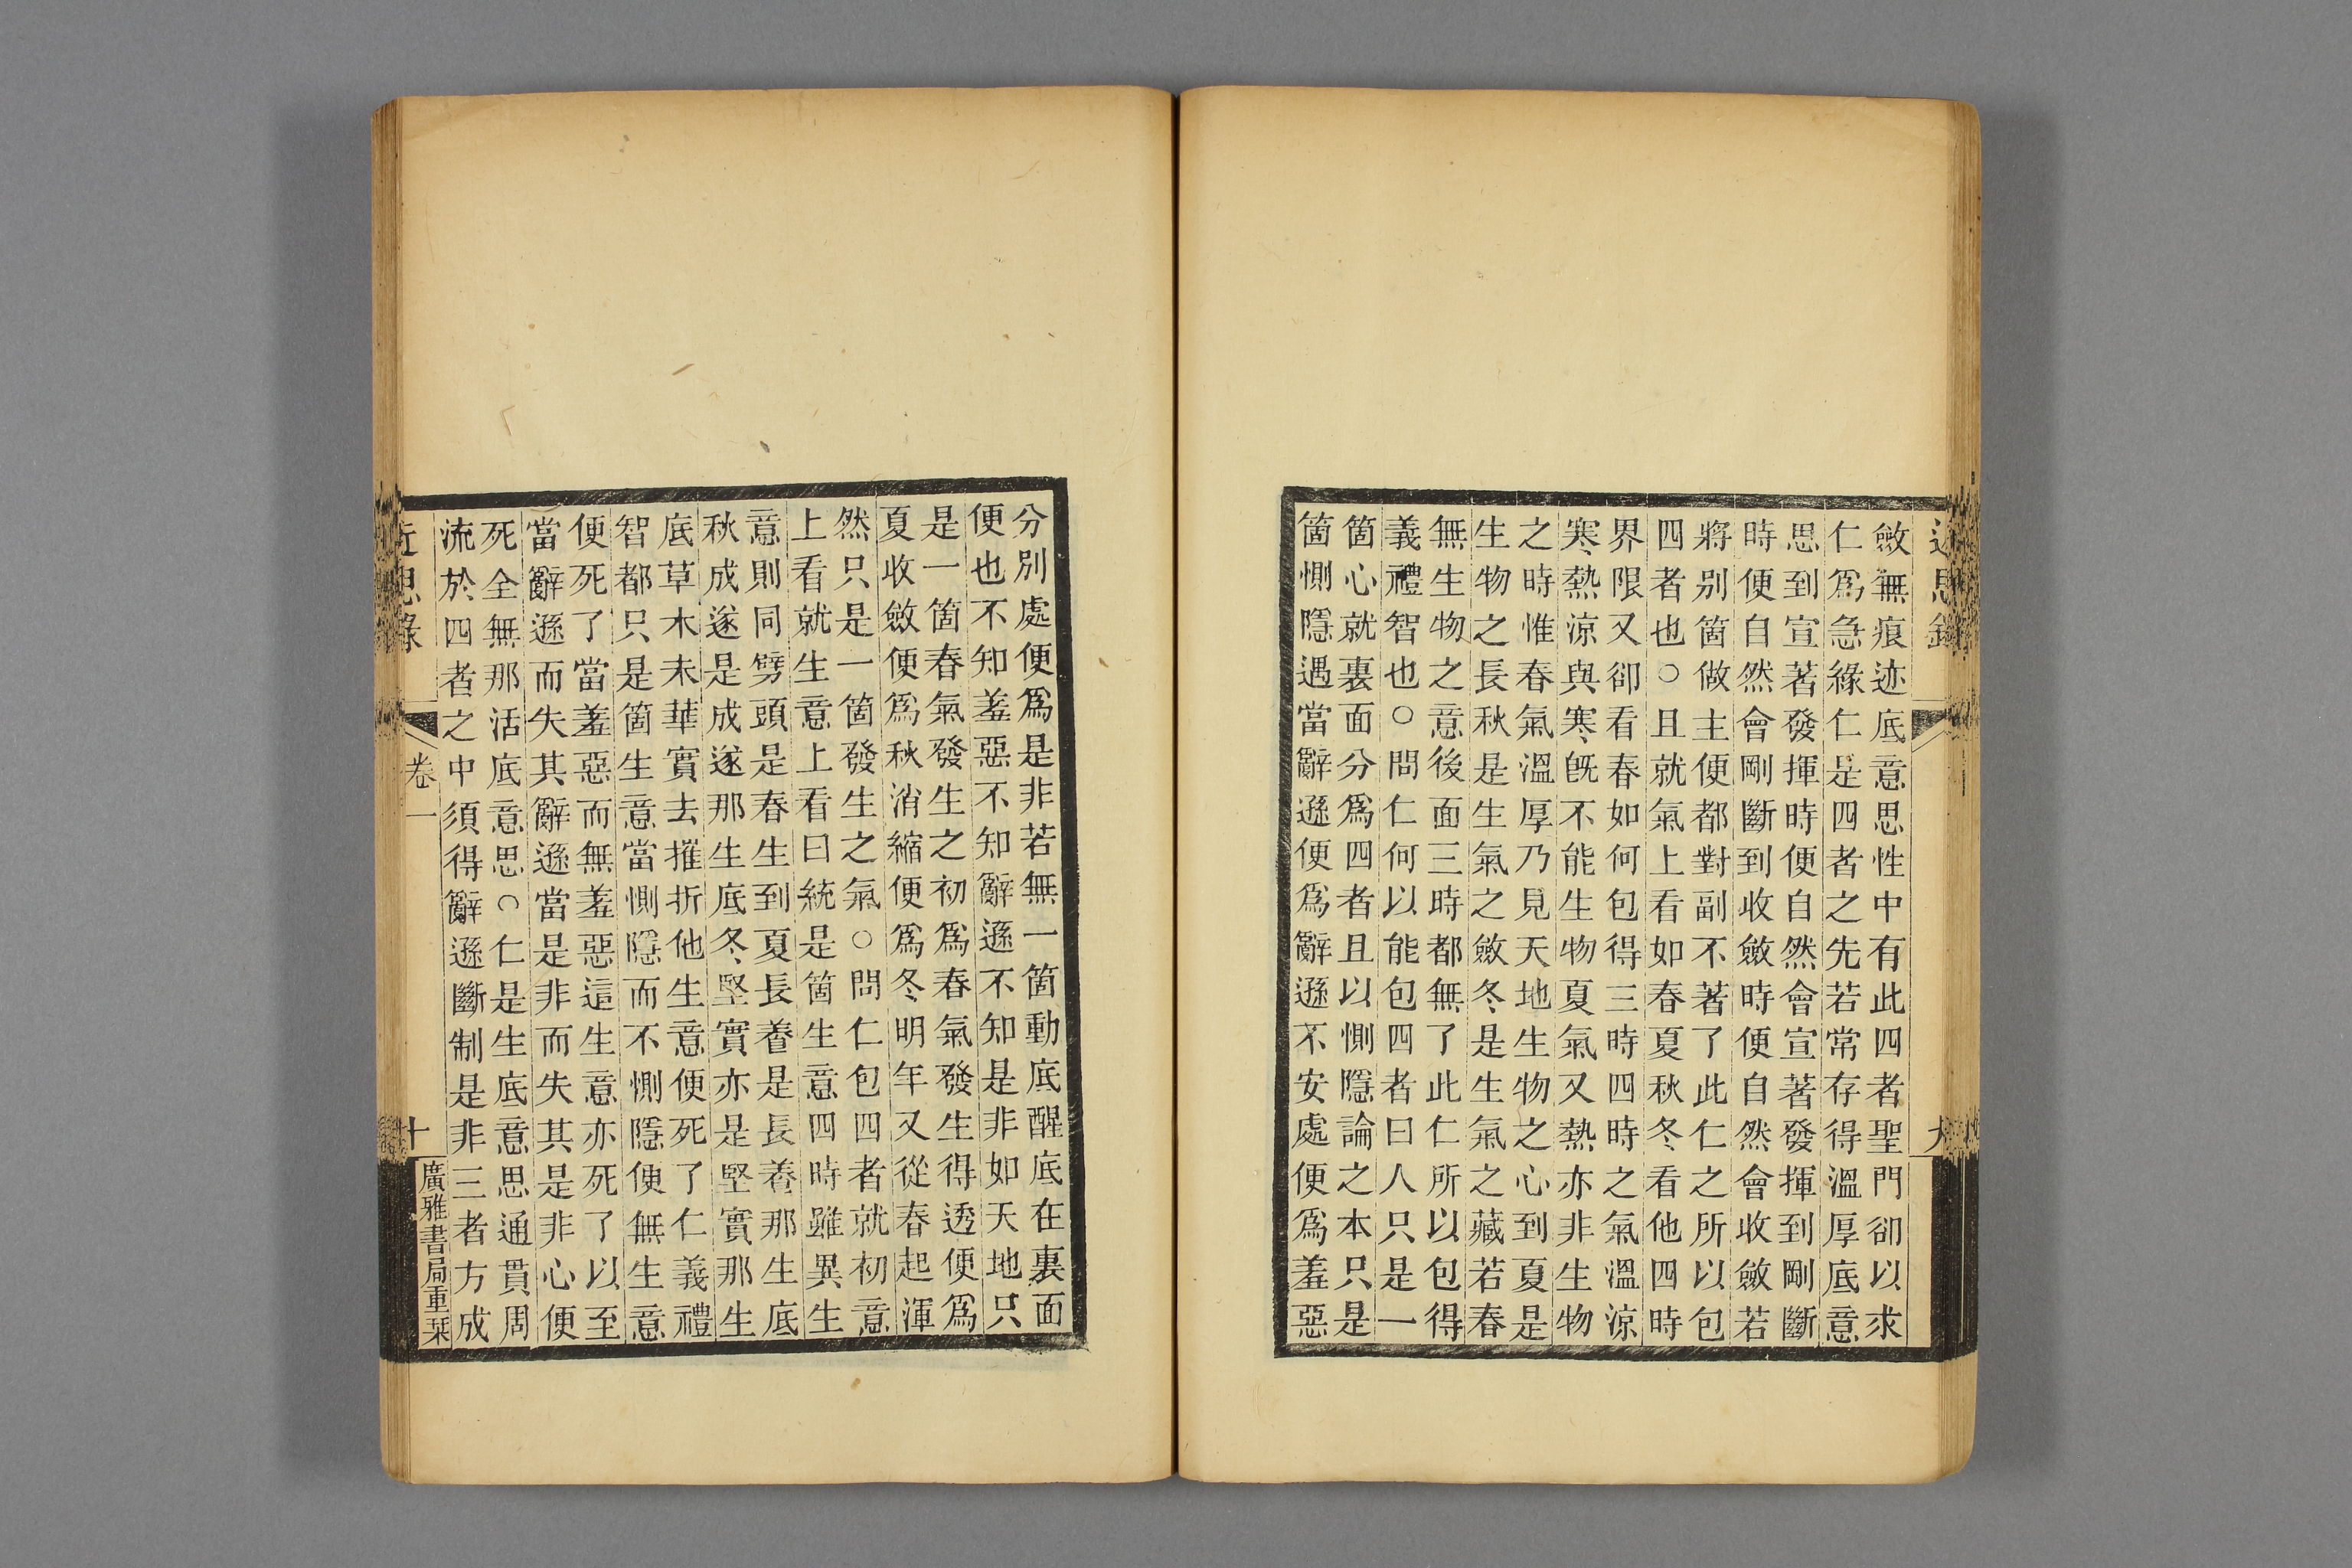 近思錄
斂無痕迹底意思性中有此四者聖門卻以求
仁爲急緣仁是四者之先若常存得溫厚底意
思到宣著發揮時便自然會宣著發揮到剛斷
時便自然會剛斷到收斂時便自然會收斂若
將別箇做主便都對副不著了此仁之所以包
四者也○且就氣上看如春夏秋冬看他四時
界限又卻看春如何包得三時四時之氣溫涼
寒熱涼與寒旣不能生物夏氣又熱亦非生物
之時惟春氣溫厚乃見天地生物之心到夏是
生物之長秋是生氣之斂冬是生氣之藏若春
無生物之意後面三時都無了此仁所以包得
義禮智也○問仁何以能包四者曰人只是一
箇心就裏面分爲四者且以惻隱論之本只是
箇惻隱遇當辭遜便爲辭遜不安處便爲羞惡
分別處便爲是非若無一箇動底醒底在裏面
便也不知羞惡不知辭遜不知是非如天地只
是一箇春氣發生之初爲春氣發生得透便爲
夏收斂便爲秋消縮便爲冬明年又從春起渾
然只是一箇發生之氣○問仁包四者就初意
上看就生意上看曰統是箇生意四時雖異生
意則同劈頭是春生到夏長養是長養那生底
秋成遂是成遂那生底冬堅實亦是堅實那生
底草木未華實去摧折他生意便死了仁義禮
智都只是箇生意當惻隱而不惻隱便無生意
便死了當羞惡而無羞惡這生意亦死了以至
當辭遜而失其辭遜當是非而失其是非心便
死全無那活底意思○仁是生底意思通貫周
流於四者之中須得辭遜斷制是非三者方成
近思錄
卷一
十
廣雅書局重栞